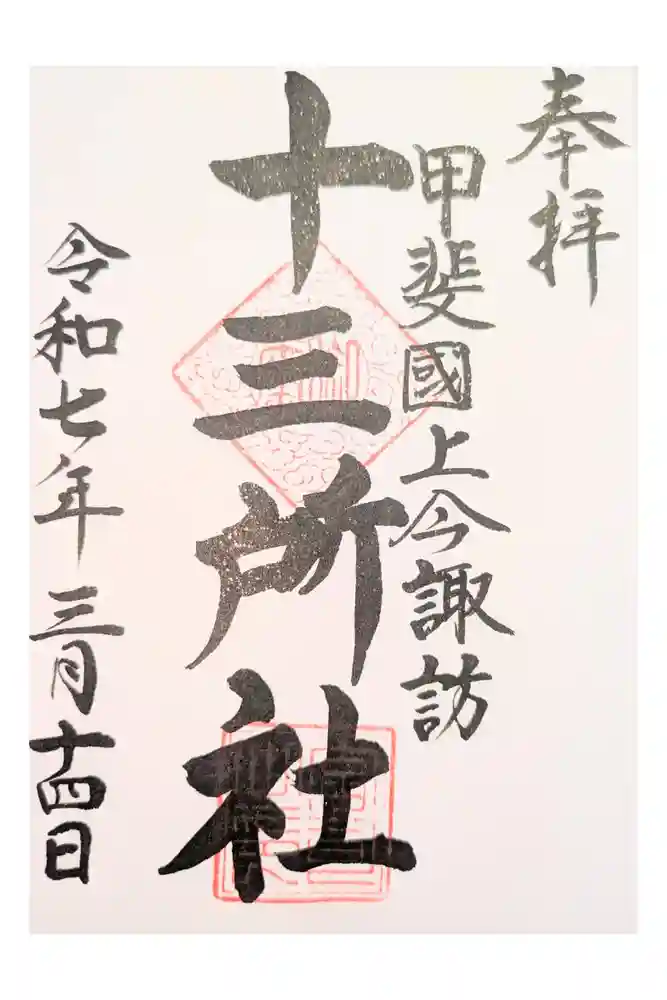 奉拝
甲斐國上今諏訪
十三所社
令和七年三月十四日